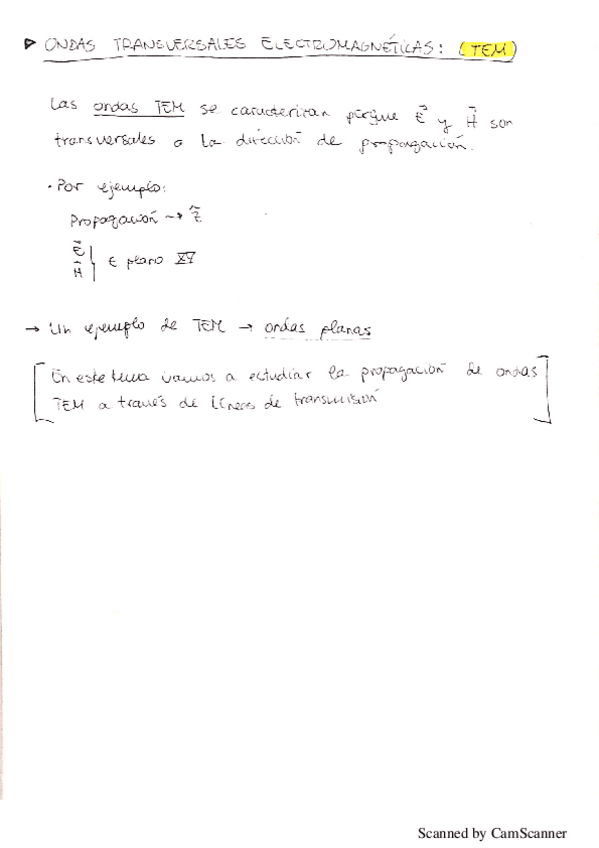 ▷ ONDAS TRANSVERSALES ELECTROMAGNÉTICAS: (TEM)
Las ondas TEM se caracterizan porque E⃗ y H⃗ son
transversales a la dirección de propagación.
· Por ejemplo:
Propagación → ẑ
E⃗
H⃗ } ∈ plano XY
→ Un ejemplo de TEM → ondas planas
[En este tema vamos a estudiar la propagación de ondas
TEM a través de líneas de transmisión]
Scanned by CamScanner